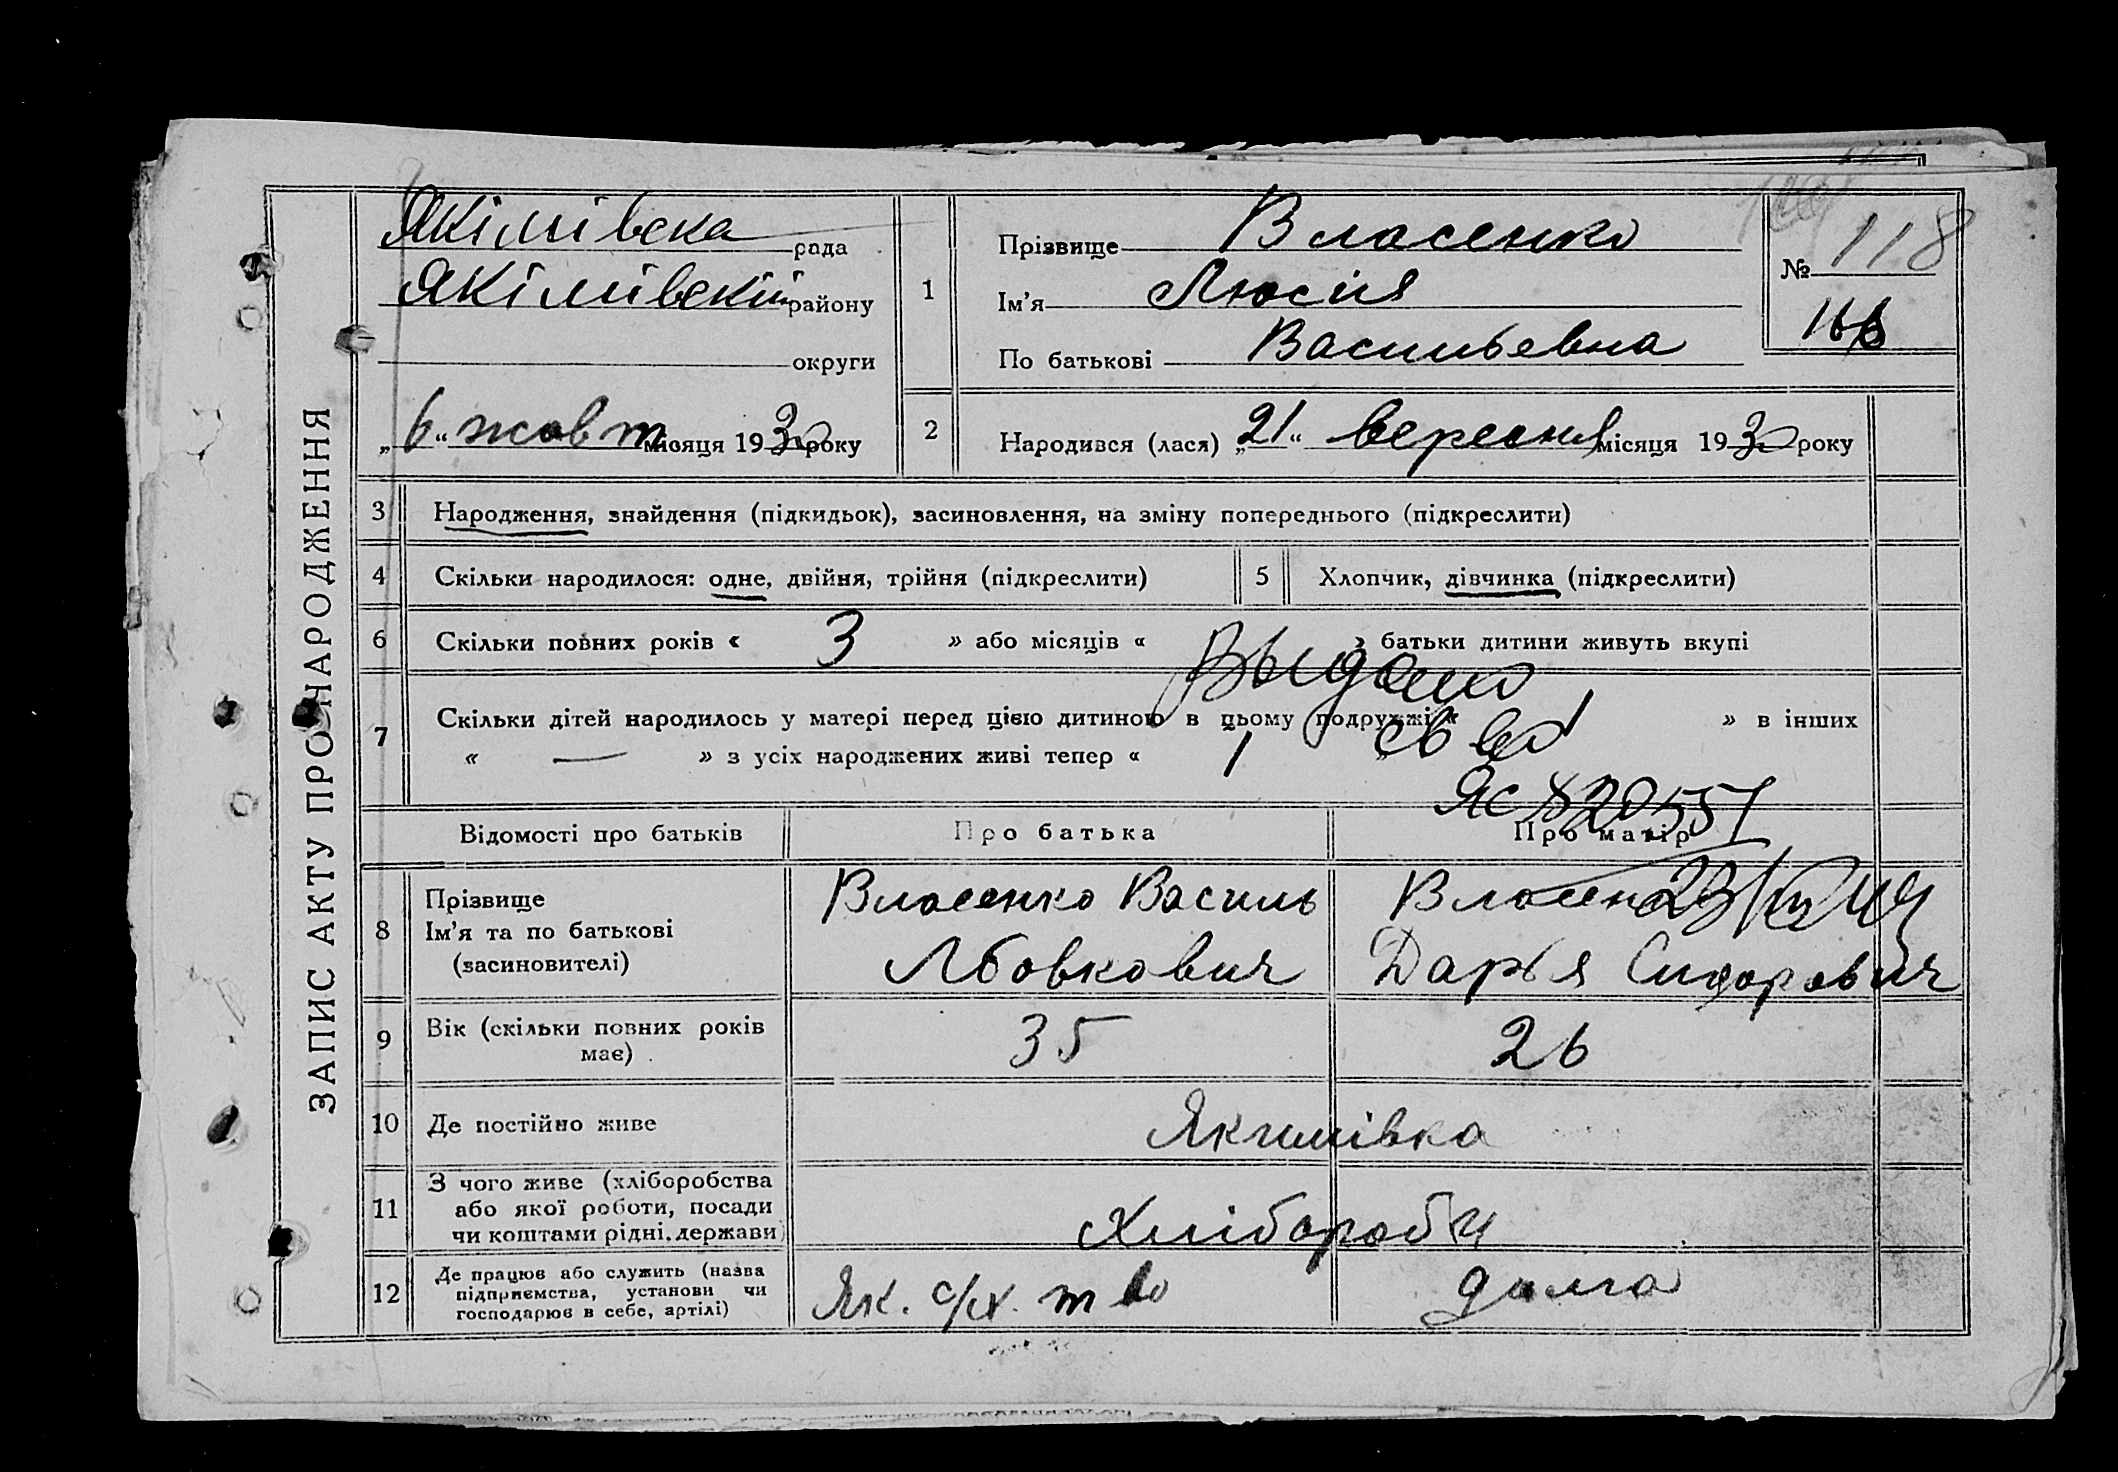 ЗАПИС АКТУ ПРО НАРОДЖЕННЯ
Якімівска рада
Якімівский району
округи
„6“ жовт місяця 1930 року
1
Прізвище Власенко
Ім'я Люсия
По батькові Васильевна
№ 118
2
Народився (лася) „21“ вересня місяця 1930 року
3 Народження, знайдення (підкидьок), засиновлення, на зміну попереднього (підкреслити)
4 Скільки народилося: одне, двійня, трійня (підкреслити) 5 Хлопчик, дівчинка (підкреслити)
6 Скільки повних років « 3 » або місяців « » батьки дитини живуть вкупі
Выдано
7 Скільки дітей народилось у матері перед цією дитиною в цьому подружжі « 1 » в інших
« — » з усіх народжених живі тепер « 1 »
св во
Відомості про батьків Про батька Про матір
8 Прізвище
Ім'я та по батькові
(засиновителі)
Власенко Василь
Власенко
Дарья Сидорович
9 Вік (скільки повних років
має)
35 26
10 Де постійно живе Якимівка
11 З чого живе (хліборобства
або якої роботи, посади
чи коштами рідні, держави)
Хлібороби
12 Де працює або служить (назва
підприємства, установи чи
господарює в себе, артілі)
Як. с/х. т во